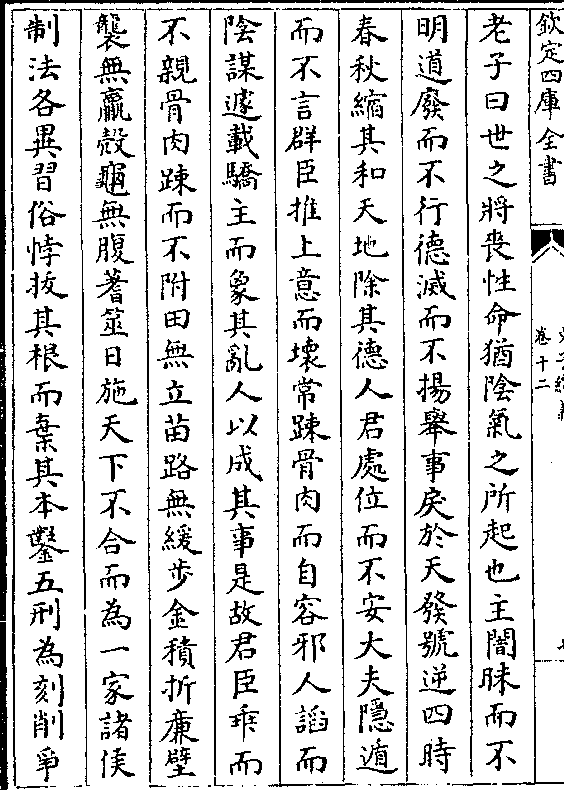 欽定四庫全書
卷十二
老子曰世之將喪性命猶陰氣之所起也主闇昧而不
明道廢而不行德滅而不揚舉事戾於天發號逆四時
春秋縮其和天地除其德人君處位而不安大夫隱遁
而不言群臣推上意而壞常踈骨肉而自容邪人謟而
陰謀遽載驕主而象其亂人以成其事是故君臣乖而
不親骨肉踈而不附田無立苗路無緩步金積折廉璧
襲無贏殻龜無腹蓍筮日施天下不合而為一家諸侯
制法各異習俗悖拔其根而棄其本鑿五刑為刻削爭